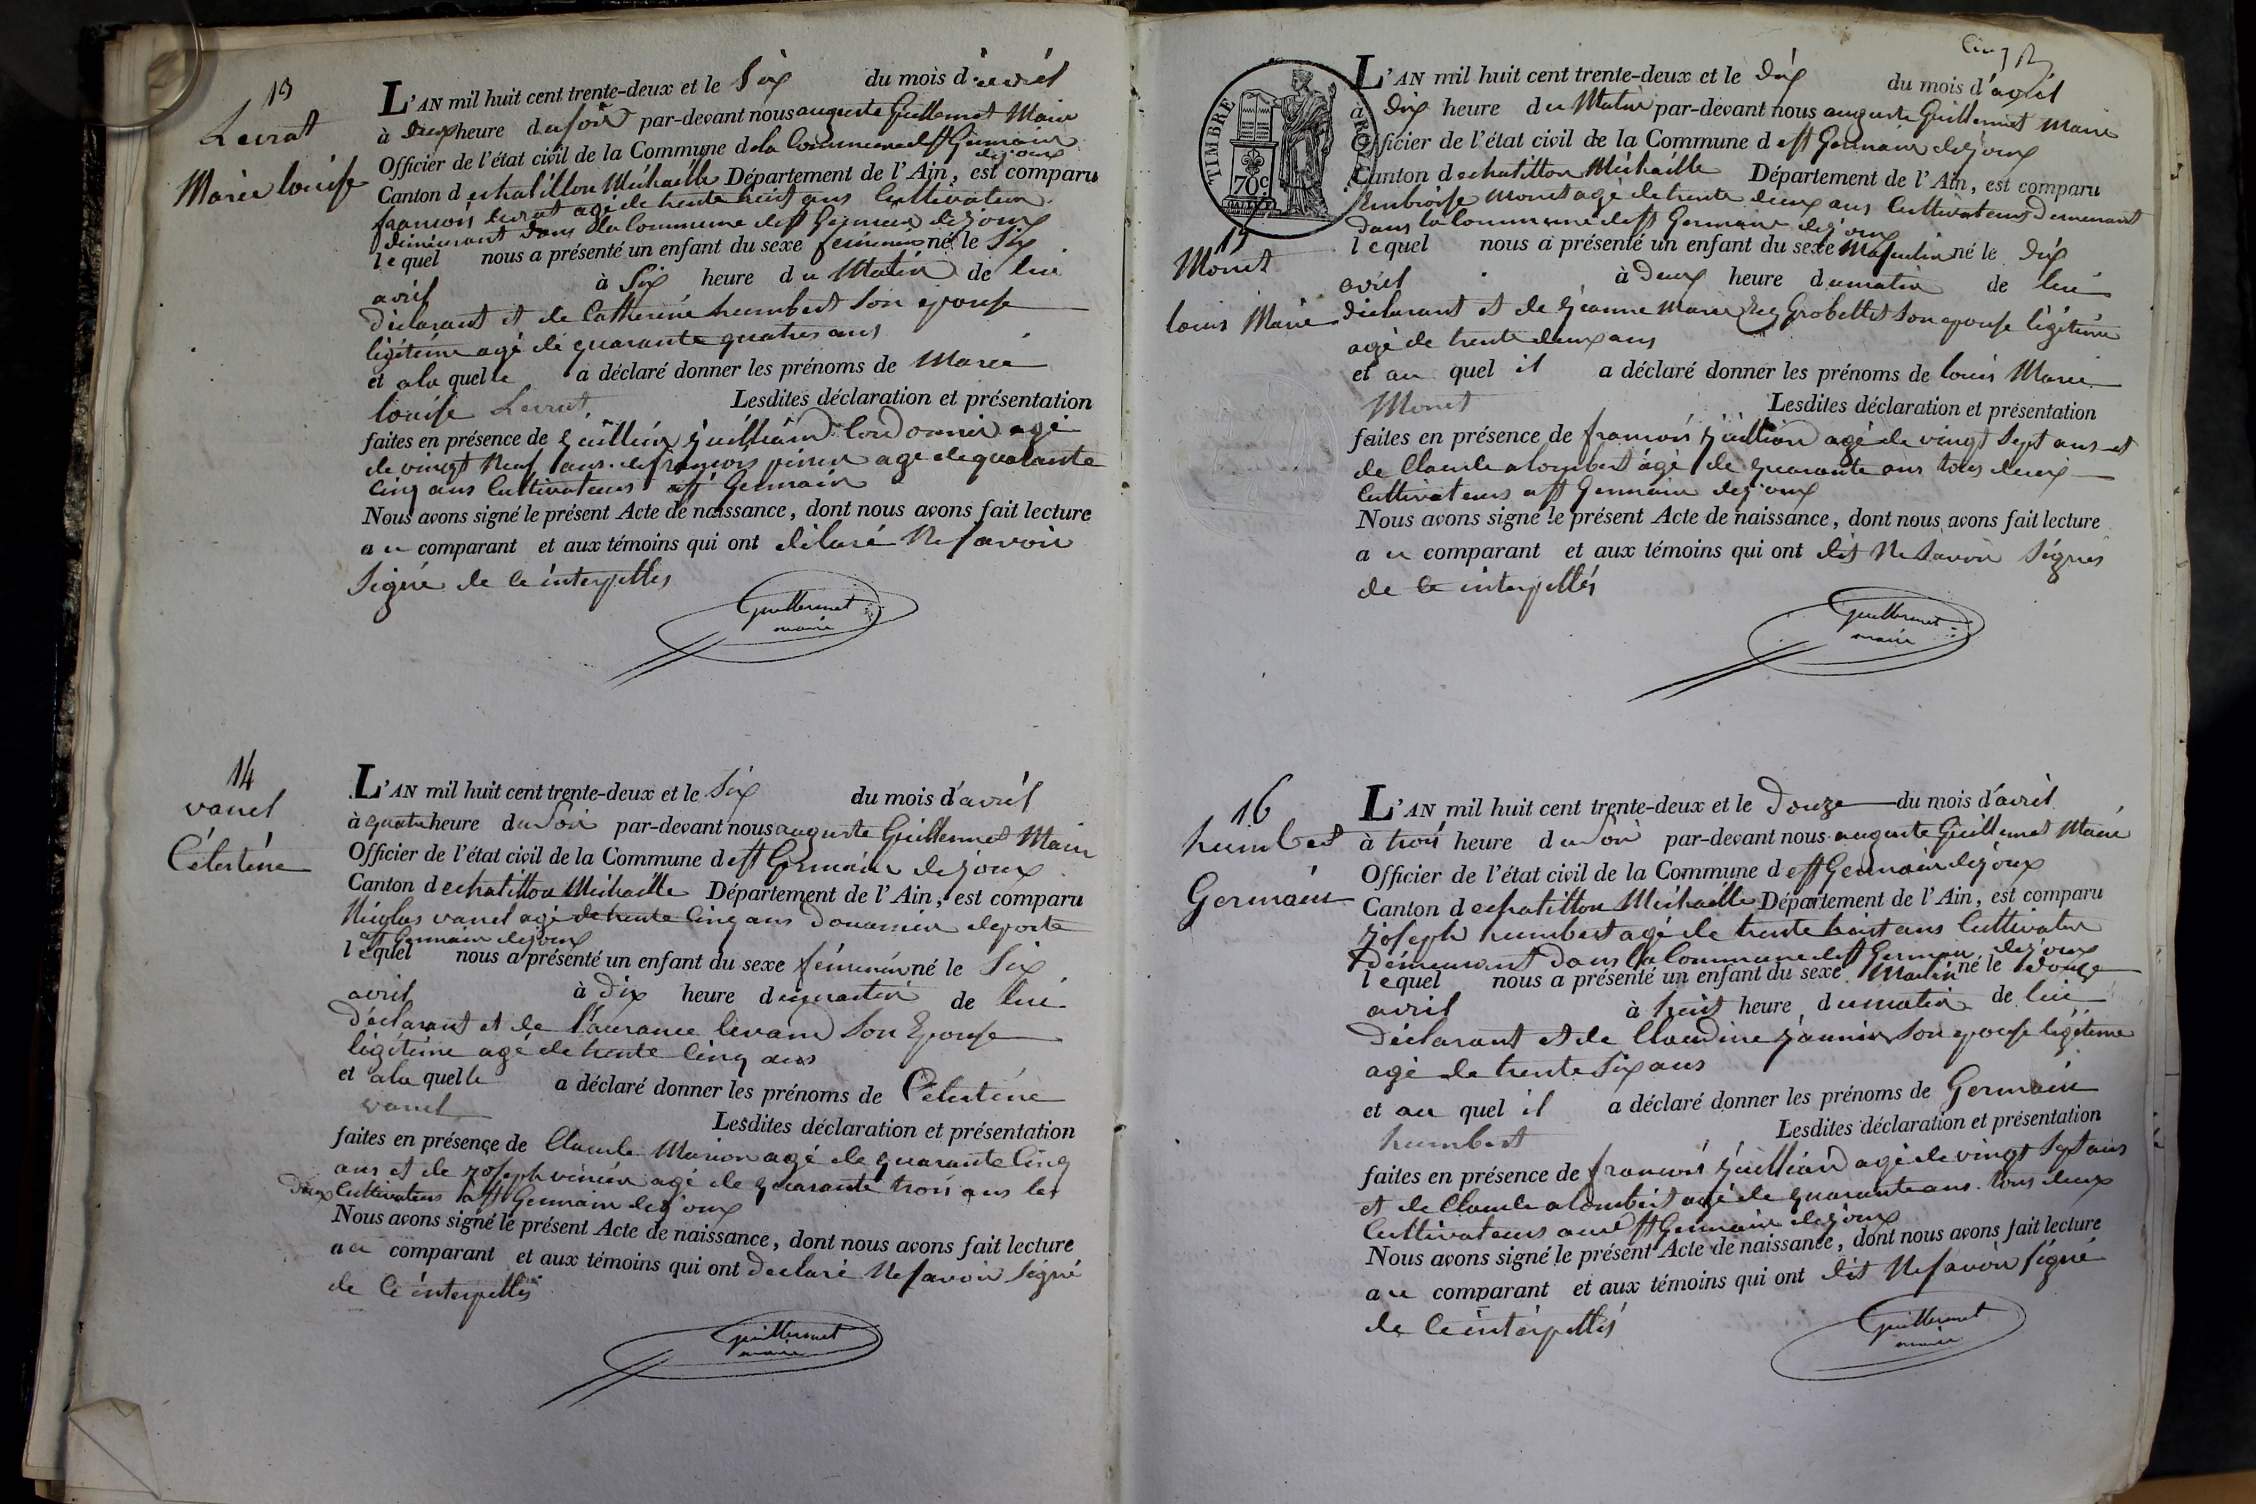 13
Levrat
Marie louise
L'AN mil huit cent trente-deux et le Six du mois d'avril
à deux heure du soir par-devant nous auguste Guillermet Maire
Officier de l'état civil de la Commune d la Commune de st Germain
de joux
Canton d echatillon Michaille Département de l'Ain, est comparu
francois Levrat agé de trente huit ans Cultivateur
demeurant dans la Commune de st Germain de joux
lequel nous a présenté un enfant du sexe feminin né le Six
avril à Six heure du Matin de lui
déclarant et de Catherine humbert Son epouse
légitime agé de quarante quatres ans
et a la quelle a déclaré donner les prénoms de Marie
louise Levrat Lesdites déclaration et présentation
faites en présence de Cordonnier agé
de vingt Neuf ans de françois agé de quarante
Cinq ans Cultivateurs a st Germain
Nous avons signé le présent Acte de naissance, dont nous avons fait lecture
au comparant et aux témoins qui ont déclaré Ne savoir
Signé de ce interpellés
Guillermet
maire
14
vanel
Célestine
L'AN mil huit cent trente-deux et le Six du mois d'avril
à quatre heure du Soir par-devant nous auguste Guillermet Maire
Officier de l'état civil de la Commune de st Germain de joux
Canton d echatillon Michaille Département de l'Ain, est comparu
Nicolas vanel agé de trente Cinq ans Douannier de poste
a st Germain de joux
lequel nous a présenté un enfant du sexe féminin né le Six
avril à Dix heure du matin de lui
déclarant et de Son Epouse
légitime agé de trente Cinq ans
et a la quelle a déclaré donner les prénoms de Célestine
vanel Lesdites déclaration et présentation
faites en présence de Claude Marion agé de quarante Cinq
ans et de joseph agé de quarante trois ans les
deux Cultivateurs a st Germain de joux
Nous avons signé le présent Acte de naissance, dont nous avons fait lecture
au comparant et aux témoins qui ont declaré Ne savoir Signé
de ce interpellés
Guillermet
maire
Cinq
TIMBRE
70c
15
Monet
louis Marie
L'AN mil huit cent trente-deux et le dix du mois d'avril
à dix heure du Matin par-devant nous auguste Guillermet Maire
Officier de l'état civil de la Commune d e st Germain de joux
Canton d echatillon Michaille Département de l'Ain, est comparu
Embroise Monet agé de trente deux ans Cultivateur Demeurant
dans la Commune de st Germain de joux
lequel nous a présenté un enfant du sexe Masculin né le dix
avril à deux heure du matin de lui
déclarant et de jeanne Marie Grobellet Son epouse légitime
agé de trente deux ans
et au quel il a déclaré donner les prénoms de louis Marie
Monet Lesdites déclaration et présentation
faites en présence de francois agé de vingt Sept ans et
de Claude alombert agé de quarante ans tous deux
Cultivateurs a st Germain de joux
Nous avons signé le présent Acte de naissance, dont nous avons fait lecture
au comparant et aux témoins qui ont dit Ne Savoir Signés
de ce interpellés
Guillermet
maire
16
humbert
Germain
L'AN mil huit cent trente-deux et le Douze du mois d'avril
à trois heure du soir par-devant nous auguste Guillermet Maire
Officier de l'état civil de la Commune d e st Germain de joux
Canton d echatillon Michaille Département de l'Ain, est comparu
joseph humbert agé de trente huit ans Cultivateur
Démeurant Dans la Commune de st Germain de joux
lequel nous a présenté un enfant du sexe né le Douze
avril à huit heure du matin de lui
Déclarant et de Claudine Son epouse légitime
agé de trente Six ans
et au quel il a déclaré donner les prénoms de Germain
humbert Lesdites déclaration et présentation
faites en présence de francois agé de vingt Sept ans
et de Claude alombert agé de quarante ans tous deux
Cultivateurs st Germain de joux
Nous avons signé le présent Acte de naissance, dont nous avons fait lecture
au comparant et aux témoins qui ont dit Ne savoir signé
de ce interpellés
Guillermet
maire